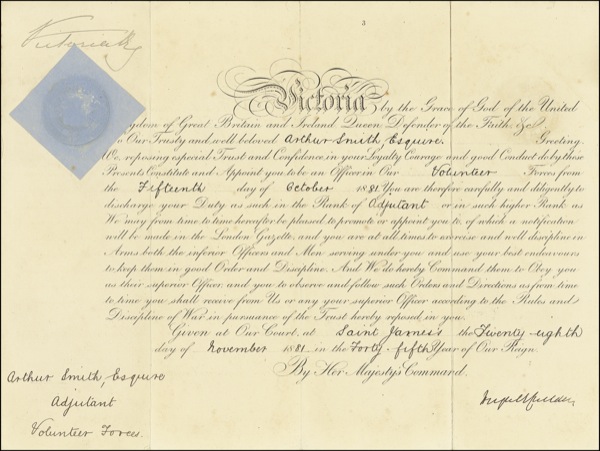 3
Victoria R
Victoria by the Grace of God of the United
Kingdom of Great Britain and Ireland Queen Defender of the Faith &c
To Our Trusty and well beloved Arthur Smith, Esquire. Greeting
We, reposing especial Trust and Confidence in your Loyalty Courage and good Conduct do by these
Presents Constitute and Appoint you to be an Officer in Our Volunteer Forces from
the Fifteenth day of October 1881 You are therefore carefully and diligently to
discharge your Duty as such in the Rank of Adjutant or in such higher Rank as
We may from time to time hereafter be pleased to promote or appoint you to, of which a notification
will be made in the London Gazette, and you are at all times to exercise and well discipline in
Arms both the inferior Officers and Men serving under you and use your best endeavours
to keep them in good Order and Discipline. And We do hereby Command them to Obey you
as their superior Officer, and you to observe and follow such Orders and Directions as from time
to time you shall receive from Us or any your superior Officer according to the Rules and
Discipline of War in pursuance of the Trust hereby reposed in you.
Given at Our Court, at Saint James's the Twenty-eighth
day of November 1881 in the Forty-fifth Year of Our Reign.
By Her Majesty's Command.
Arthur Smith, Esquire
Adjutant
Volunteer Forces.